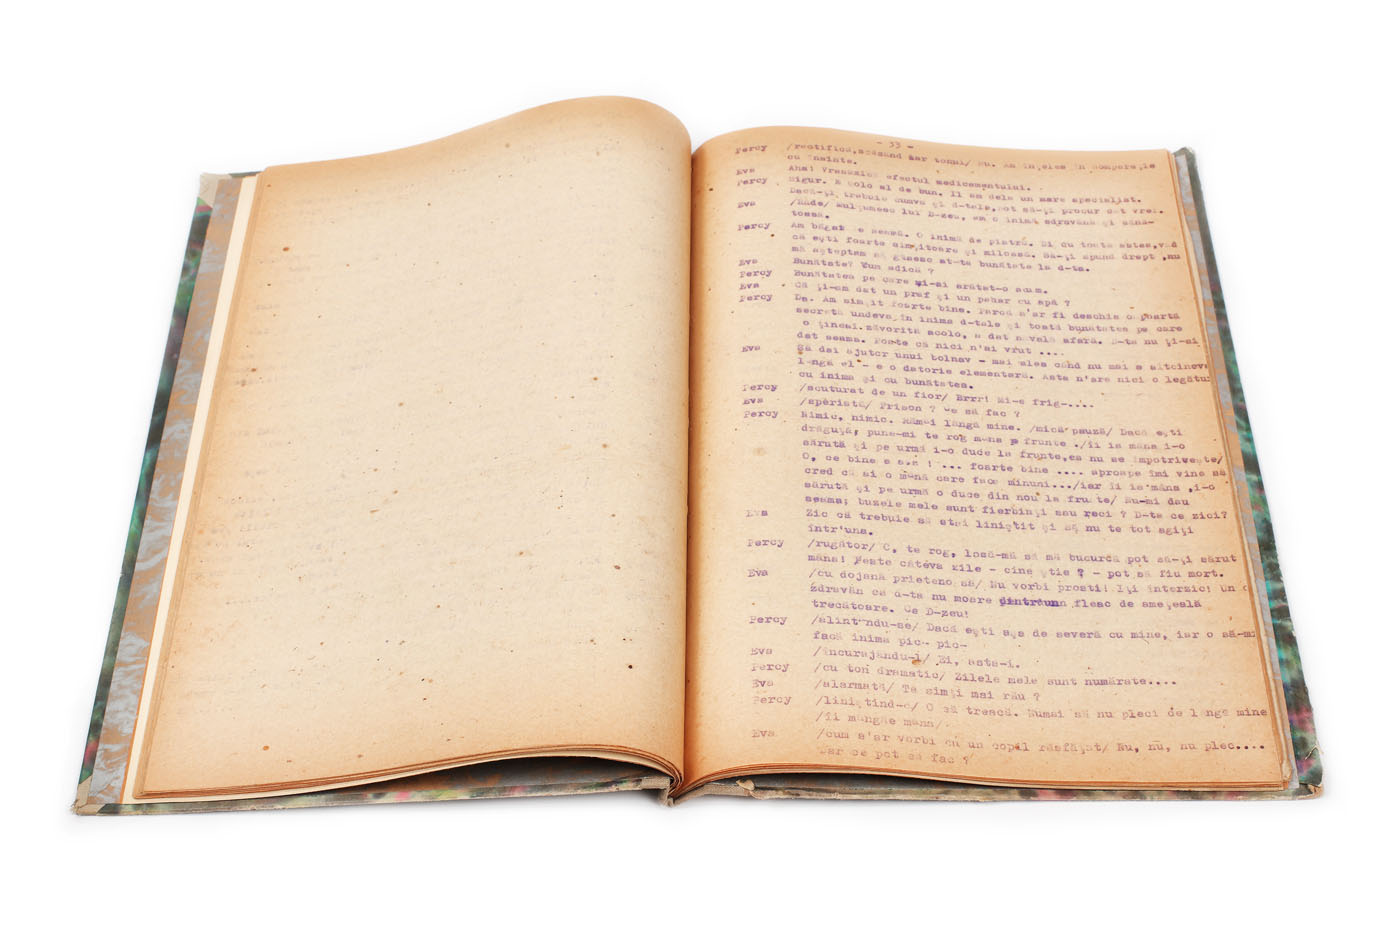 - 33 -
Percy /rectifică,scăzând iar tonul/ Nu. Am înţeles în compare,ie
cu înainte.
Eva Aha! efectul medicamentului.
Percy Sigur. E colo al de bun. Îl am dela un mare specialist.
Dacă-ţi trebuie cumva şi d-tale,pot să-ţi procur cât vrei.
Eva /Râde/ Mulţumesc lui D-zeu, am o inimă zdravănă şi sănă-
toasă.
Percy Am băgat de seamă. O inimă de piatră. Şi cu toate astea,văd
că eşti foarte simţitoare şi miloasă. Să-ţi spund drept ,nu
mă aşteptam să găsesc at-ta bunătate la d-ta.
Eva Bunătate? Cum adică ?
Percy Bunătatea pe care mi-ai arătat-o acum.
Eva Că ţi-am dat un praf şi un pahar cu apă ?
Percy Da. Am simţit foarte bine. Parcă s'ar fi deschis o poartă
secretă undeva,în inima d-tale şi toată bunătatea pe care
o ţineai zăvorită acolo, a dat navală afară. D-ta nu ţi-ai
dat seama. Poate că nici n'ai vrut ....
Eva Să dai ajutor unui bolnav - mai ales când nu mai e altcineva
lângă el - e o datorie elementară. Asta n'are nici o legătur
cu inima şi cu bunătatea.
Percy /scuturat de un fior/ Brrr! Mi-e frig-....
Eva /speriată/ Frison ? Ce să fac ?
Percy Nimic, nimic. Rămâi lângă mine. /mică pauză/ Dacă eşti
drăguţă, pune-mi te rog mâna pe frunte ./îi ia mâna i-o
sărută şi pe urmă i-o duce la frunte,ea nu se împotriveşte/
O, ce bine e aşa ! ... foarte bine .... aproape îmi vine să
cred că ai o mână care face minuni.../iar îi ia mâna ,i-o
sărută şi pe urmă o duce din nou la frunte/ Nu-mi dau
seama; buzele mele sunt fierbinţi sau reci ? D-ta ce zici?
Eva Zic că trebuie să stai liniştit şi să nu te tot agiţi
într'una.
Percy /rugător/ O, te rog, lasă-mă să mă bucurcă pot să-ţi sărut
mâna! Peste câteva zile - cine ştie ? - pot să fiu mort.
Eva /cu dojană prietenoasă/ Nu vorbi prostii! Iţi interzic! Un
zdravăn ca d-ta nu moare dintrăunn fleac de ameţeală
trecătoare. Ce D-zeu!
Percy /alintându-se/ Dacă eşti aşa de severă cu mine, iar o să-mi
facă inima pic- pic-
Eva /încurajându-l/ Ei, asta-i.
Percy /cu ton dramatic/ Zilele mele sunt numărate....
Eva /alarmată/ Te simţi mai rău ?
Percy /liniştind-o/ O să treacă. Numai să nu pleci de lângă mine
/îi mângâe mâna/.
Eva /cum s'ar vorbi cu un copil răsfăţat/ Nu, nu, nu plec....
Dar ce pot să fac ?